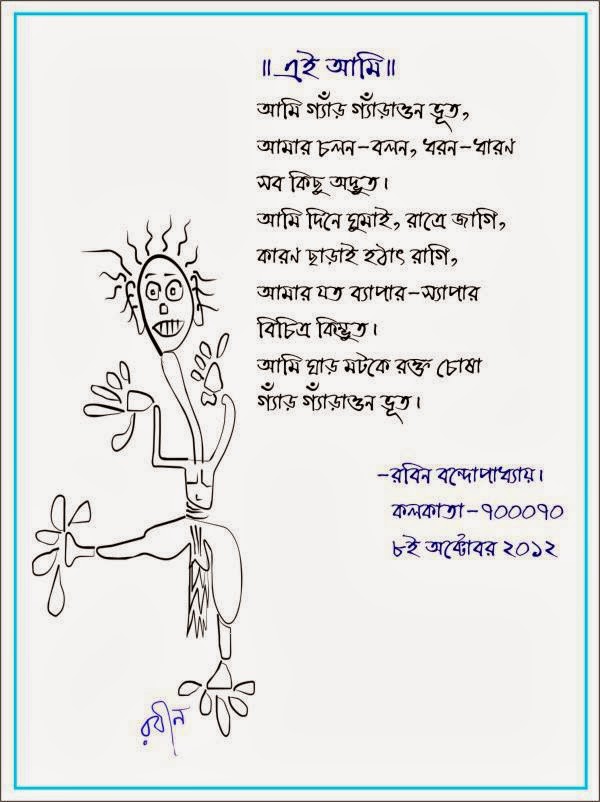 ॥ এই আমি॥
আমি গ্যাঁড় গ্যাঁড়াগুন ভূত,
আমার চলন-বলন, ধরন-ধারণ
সব কিছু অদ্ভুত।
আমি দিনে ঘুমাই, রাত্রে জাগি,
কারণ ছাড়াই হঠাৎ রাগি,
আমার যত ব্যাপার-স্যাপার
বিচিত্র কিম্ভুত।
আমি ঘাড় মটকে রক্ত চোষা
গ্যাঁড় গ্যাঁড়াগুন ভূত।
-রবিন বন্দোপাধ্যায়।
কলকাতা-৭০০০৭০
৮ই অক্টোবর ২০১২
রবীন